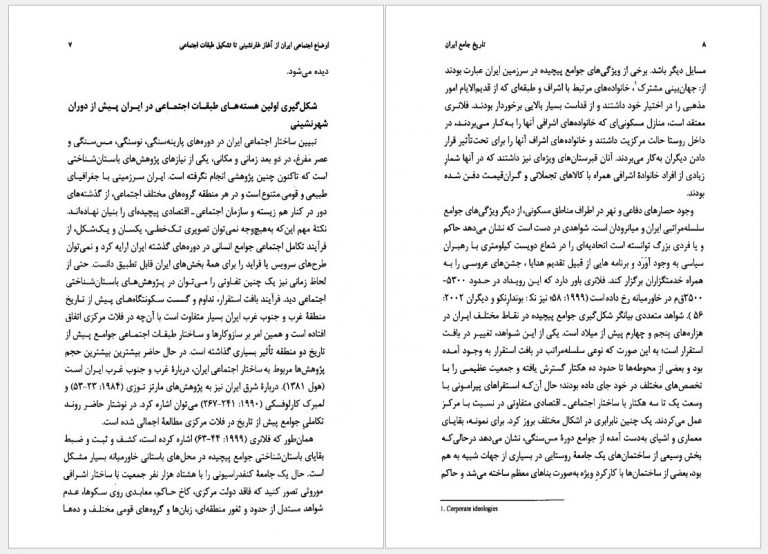 اوضاع اجتماعی ایران از آغاز غارنشینی تا تشکیل طبقات اجتماعی ۷
دیده می‌شود.
شکل‌گیری اولین هسته‌های طبقات اجتماعی در ایران پیش از دوران
شهرنشینی
تبیین ساختار اجتماعی ایران در دوره‌های پارینه‌سنگی، نوسنگی، مس‌سنگی و
عصر مفرغ، در دو بعد زمانی و مکانی، یکی از نیازهای پژوهش‌های باستان‌شناختی
است که تاکنون چنین پژوهشی انجام نگرفته است. ایران سرزمینی با جغرافیای
طبیعی و قومی متنوع است و در هر منطقه گروه‌های مختلف اجتماعی، از گذشته‌های
دور در کنار هم زیسته و سازمان اجتماعی ـ اقتصادی پیچیده‌ای را بنیان نهاده‌اند.
نکتهٔ مهم این‌که به‌هیچ‌وجه نمی‌توان تصویری تک‌خطی، یکسان و یک‌شکل، از
فرآیند تکامل اجتماعی جوامع انسانی در دوره‌های گذشته ایران ارایه کرد و نمی‌توان
طرح‌های سرویس یا فراید را برای همهٔ بخش‌های ایران قابل تطبیق دانست. حتی از
لحاظ زمانی نیز یک چنین تفاوتی را می‌توان در پژوهش‌های باستان‌شناختی
اجتماعی دید. فرآیند بافت استقرار، تداوم و گسست سکونتگاه‌های پیش از تاریخ
منطقهٔ غرب و جنوب غرب ایران بسیار متفاوت است با آن‌چه در فلات مرکزی اتفاق
افتاده است و همین امر بر سازوکارها و ساختار طبقات اجتماعی جوامع پیش از
تاریخ دو منطقه تأثیر بسیاری گذاشته است. در حال حاضر بیشترین بیشترین حجم
پژوهش‌ها مربوط به ساختار اجتماعی ایران، دربارهٔ غرب و جنوب غرب ایران است
(هول ۱۳۸۱). دربارهٔ شرق ایران نیز به پژوهش‌های مارتز توزی (۱۹۸۴: ۲۳-۵۳) و
لمبرگ کارلوفسکی (۱۹۹۰: ۲۴۱-۲۶۷) می‌توان اشاره کرد. در نوشتار حاضر روند
تکاملی جوامع پیش از تاریخ در فلات مرکزی مطالعهٔ اجمالی شده است.
همان‌طور که فلانری (۱۹۹۹: ۴۴-۶۳) اشاره کرده است، کشف و ثبت و ضبط
بقایای باستان‌شناختی جوامع پیچیده در محل‌های باستانی خاورمیانه بسیار مشکل
است. حال یک جامعهٔ کنفدراسیونی را با هشتاد هزار نفر جمعیت با ساختار اشرافی
موروثی تصور کنید که فاقد دولت مرکزی، کاخ حاکم، معابدی روی سکوها، عدم
شواهد مستدل از حدود و ثغور منطقه‌ای، زبان‌ها و گروه‌های قومی مختلف و ده‌ها
۸ تاریخ جامع ایران
مسایل دیگر باشد. برخی از ویژگی‌های جوامع پیچیده در سرزمین ایران عبارت بودند
از: جهان‌بینی مشترک۱، خانواده‌های مرتبط با اشراف و طبقه‌ای که از قدیم‌الایام امور
مذهبی را در اختیار خود داشتند و از قداست بسیار بالایی برخوردار بودند. فلانری
معتقد است، منازل مسکونی‌ای که خانواده‌های اشرافی آنها را به‌کار می‌بردند، در
داخل روستا حالت مرکزیت داشتند و خانواده‌های اشراف آنها را برای تحت‌تأثیر قرار
دادن دیگران به‌کار می‌بردند. آنان قبرستان‌های ویژه‌ای نیز داشتند که در آنها شمار
زیادی از افراد خانوادهٔ اشرافی همراه با کالاهای تجملاتی و گران‌قیمت دفن شده
بودند.
وجود حصارهای دفاعی و نهر در اطراف مناطق مسکونی، از دیگر ویژگی‌های جوامع
سلسله‌مراتبی ایران و میانرودان است. شواهدی در دست است که نشان می‌دهد حاکم
و یا فردی بزرگ توانسته است اتحادیه‌ای را در شعاع دویست کیلومتری با رهبران
سیاسی به وجود آورَد و برنامه هایی از قبیل تقدیم هدایا ، جشن‌های عروسی را به
همراه خدمتگزاران برگزار کند. فلانری باور دارد که این رویداد در حدود ۵۳۰۰-
۳۵۰۰ق‌م در خاورمیانه رخ داده است (۱۹۹۹: ۵۸؛ نیز نک‍: بوندارنکو و دیگران ۲۰۰۲:
۵۶ ). شواهد متعددی بیانگر شکل‌گیری جوامع پیچیده در نقاط مختلف ایران در
هزاره‌های پنجم و چهارم پیش از میلاد است. یکی از این شواهد، تغییر در بافت
استقرار است؛ به این صورت که نوعی سلسله‌مراتب در بافت استقرار به وجود آمده
بود و بعضی از محوطه‌ها تا حدود ده هکتار گسترش یافته و جمعیت عظیمی را با
تخصص‌های مختلف در خود جای داده بودند؛ حال آن‌که استقرارهای پیرامونی با
وسعت یک تا سه هکتار با ساختار اجتماعی ـ اقتصادی متفاوتی در نسبت با مرکز
عمل می‌کردند. یک چنین نابرابری در اشکال مختلف بروز کرد. برای نمونه، بقایای
معماری و اشیای به‌دست آمده از جوامع دورهٔ مس‌سنگی، نشان می‌دهد درحالی‌که
بخش وسیعی از ساختمان‌های یک جامعهٔ روستایی در بسیاری از جهات شبیه به هم
بود، بعضی از ساختمان‌ها با کارکردِ ویژه به‌صورت بناهای معظم ساخته می‌شد و حاکم
1. Corporate ideologies